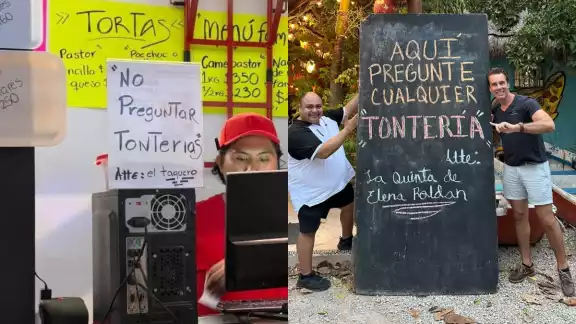 TORTAS
Pastor
Pac choc
ncilla to
queso $
Menú fam
Campastor
1Kg $350
1/2Kg 230
ares
260
"NO
Preguntar
Tonterias"
Atte: el taquero
AQUÍ
PREGUNTE
CUALQUIER
"TONTERÍA"
Atte:
La Quinta de
Elena Roldan